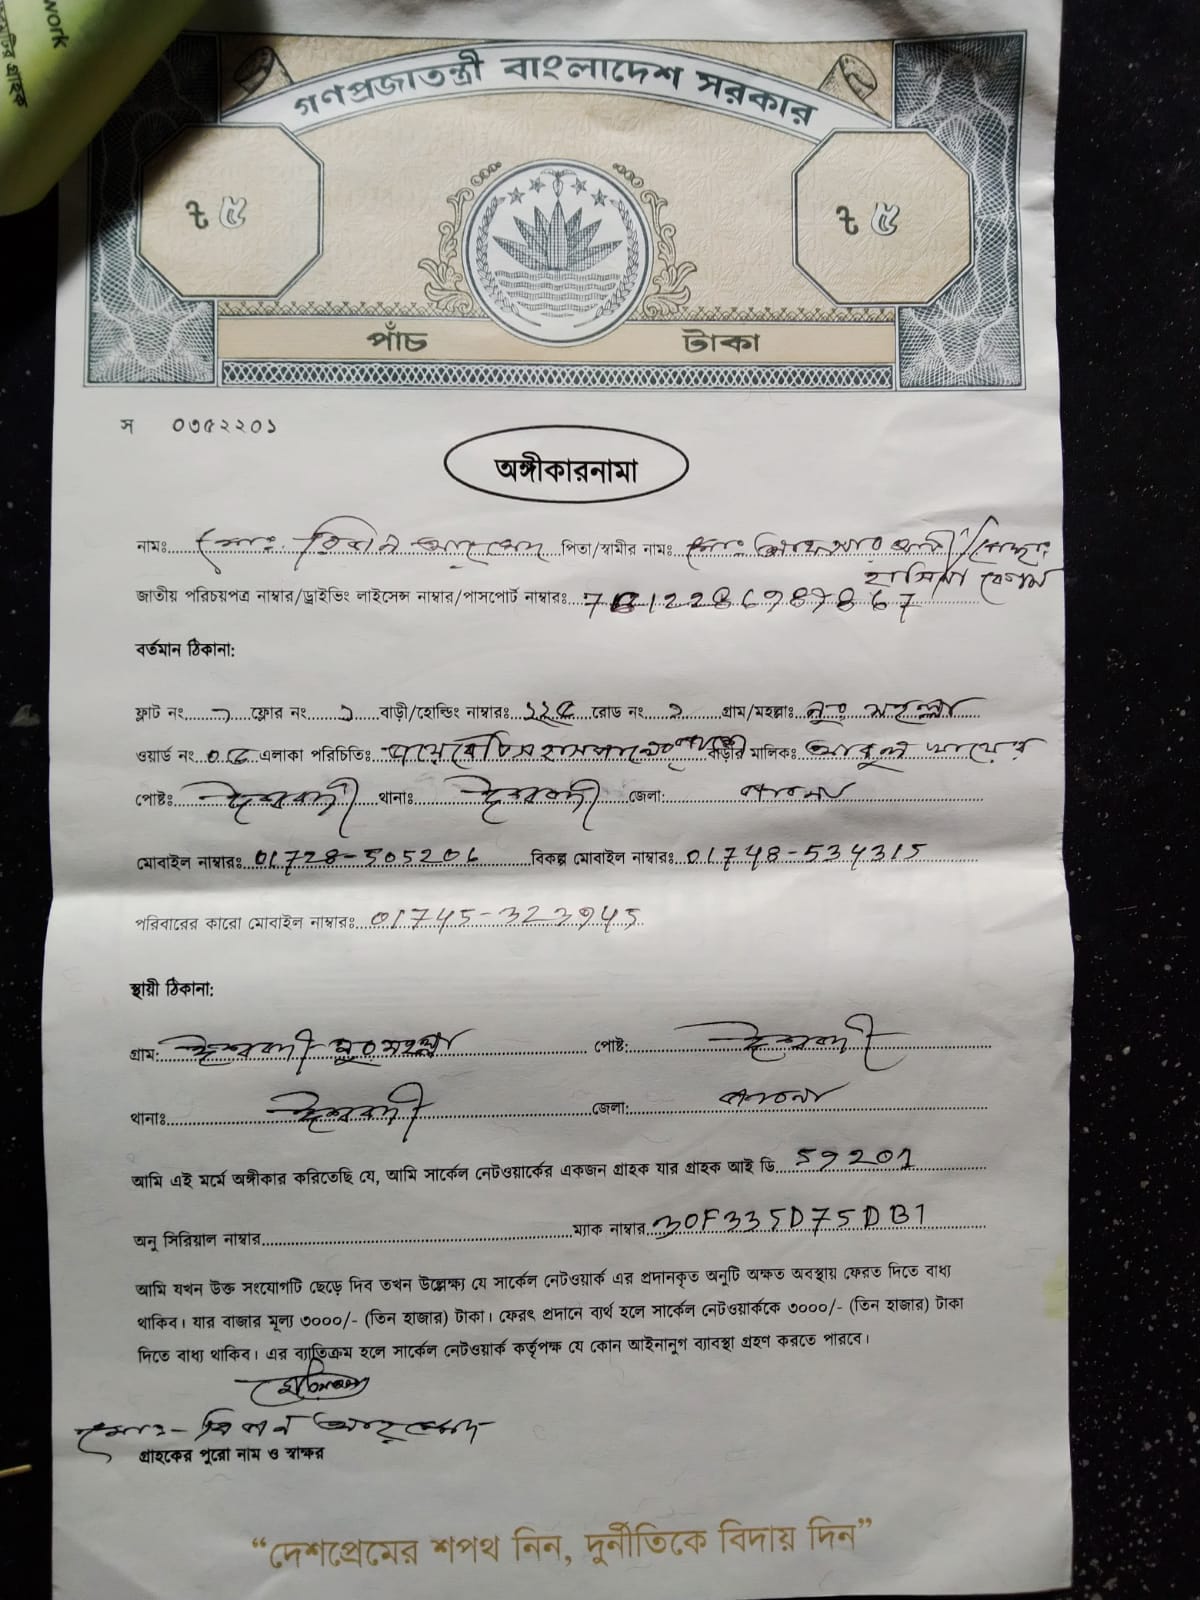 work
গণপ্রজাতন্ত্রী বাংলাদেশ সরকার
৳ ৫ ৳ ৫
পাঁচ টাকা
স ০৩৫২২০১
অঙ্গীকারনামা
নামঃ মোঃ আহম্মেদ পিতা/স্বামীর নামঃ মোঃ / মোছাঃ
হাসিনা বেগম
জাতীয় পরিচয়পত্র নাম্বার/ড্রাইভিং লাইসেন্স নাম্বার/পাসপোর্ট নাম্বারঃ
বর্তমান ঠিকানা:
ফ্লাট নং ফ্লোর নং ১ বাড়ী/হোল্ডিং নাম্বারঃ ১২৫ রোড নং ১ গ্রাম/মহল্লাঃ নুর মহল্লা
ওয়ার্ড নং ০৫ এলাকা পরিচিতিঃ বাড়ীর মালিকঃ আবুল খায়ের
পোষ্টঃ ঈশ্বরদী থানাঃ ঈশ্বরদী জেলা: পাবনা
মোবাইল নাম্বারঃ 01728-505206 বিকল্প মোবাইল নাম্বারঃ 01748-534315
পরিবারের কারো মোবাইল নাম্বারঃ 01745-323945
স্থায়ী ঠিকানা:
গ্রাম: ঈশ্বরদী নুর মহল্লা পোষ্ট: ঈশ্বরদী
থানাঃ ঈশ্বরদী জেলা: পাবনা
আমি এই মর্মে অঙ্গীকার করিতেছি যে, আমি সার্কেল নেটওয়ার্কের একজন গ্রাহক যার গ্রাহক আই ডি 59201
অনু সিরিয়াল নাম্বার ম্যাক নাম্বার 30F335D75DB1
আমি যখন উক্ত সংযোগটি ছেড়ে দিব তখন উল্লেক্ষ্য যে সার্কেল নেটওয়ার্ক এর প্রদানকৃত অনুটি অক্ষত অবস্থায় ফেরত দিতে বাধ্য
থাকিব। যার বাজার মূল্য ৩০০০/- (তিন হাজার) টাকা। ফেরৎ প্রদানে ব্যর্থ হলে সার্কেল নেটওয়ার্ককে ৩০০০/- (তিন হাজার) টাকা
দিতে বাধ্য থাকিব। এর ব্যতিক্রম হলে সার্কেল নেটওয়ার্ক কর্তৃপক্ষ যে কোন আইনানুগ ব্যাবস্থা গ্রহণ করতে পারবে।
মোঃ- আহম্মেদ
গ্রাহকের পুরো নাম ও স্বাক্ষর
“দেশপ্রেমের শপথ নিন, দুর্নীতিকে বিদায় দিন”